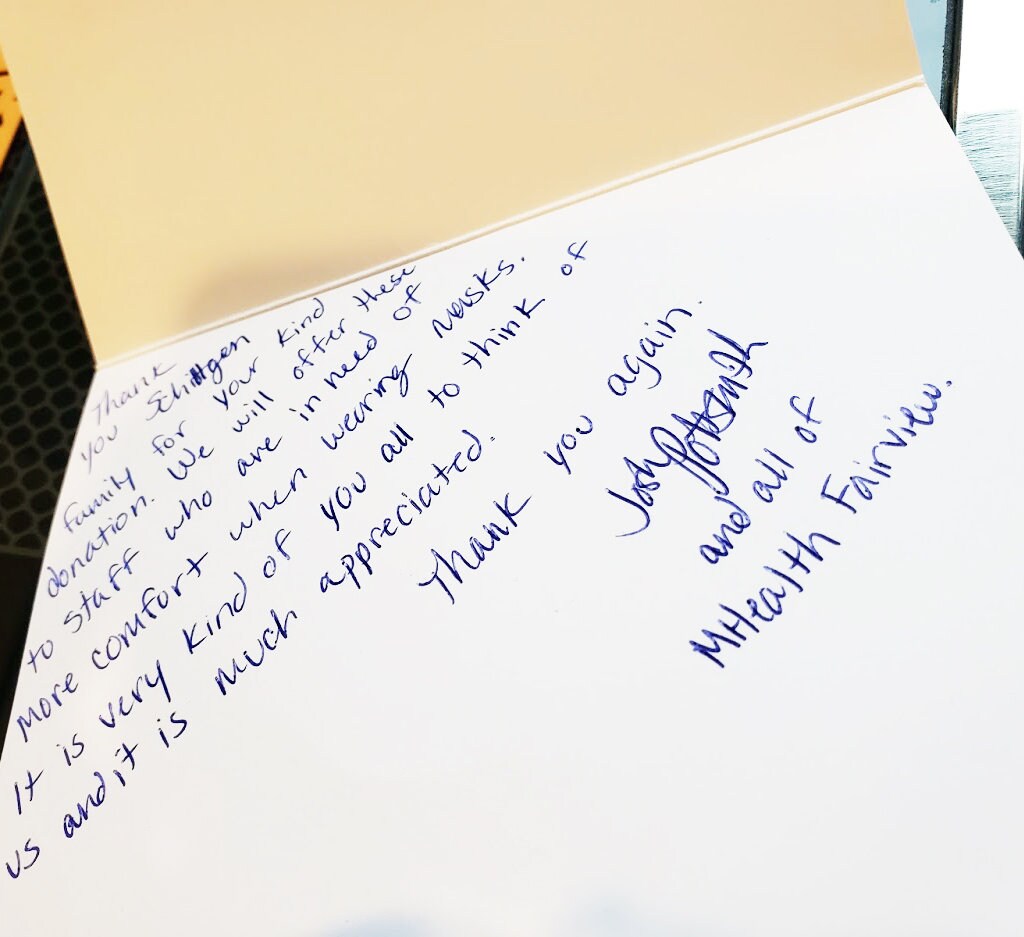 Thank
you Schittgen
family for your kind
donation. We will offer these
to staff who are in need of
more comfort when wearing masks.
It is very kind of you all to think of
us and it is much appreciated.
Thank you again.
Josh
and all of
MHealth Fairview.